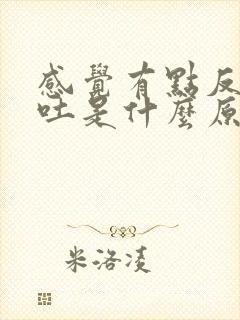 感覺有點反
吐是什麼原
米洛凌